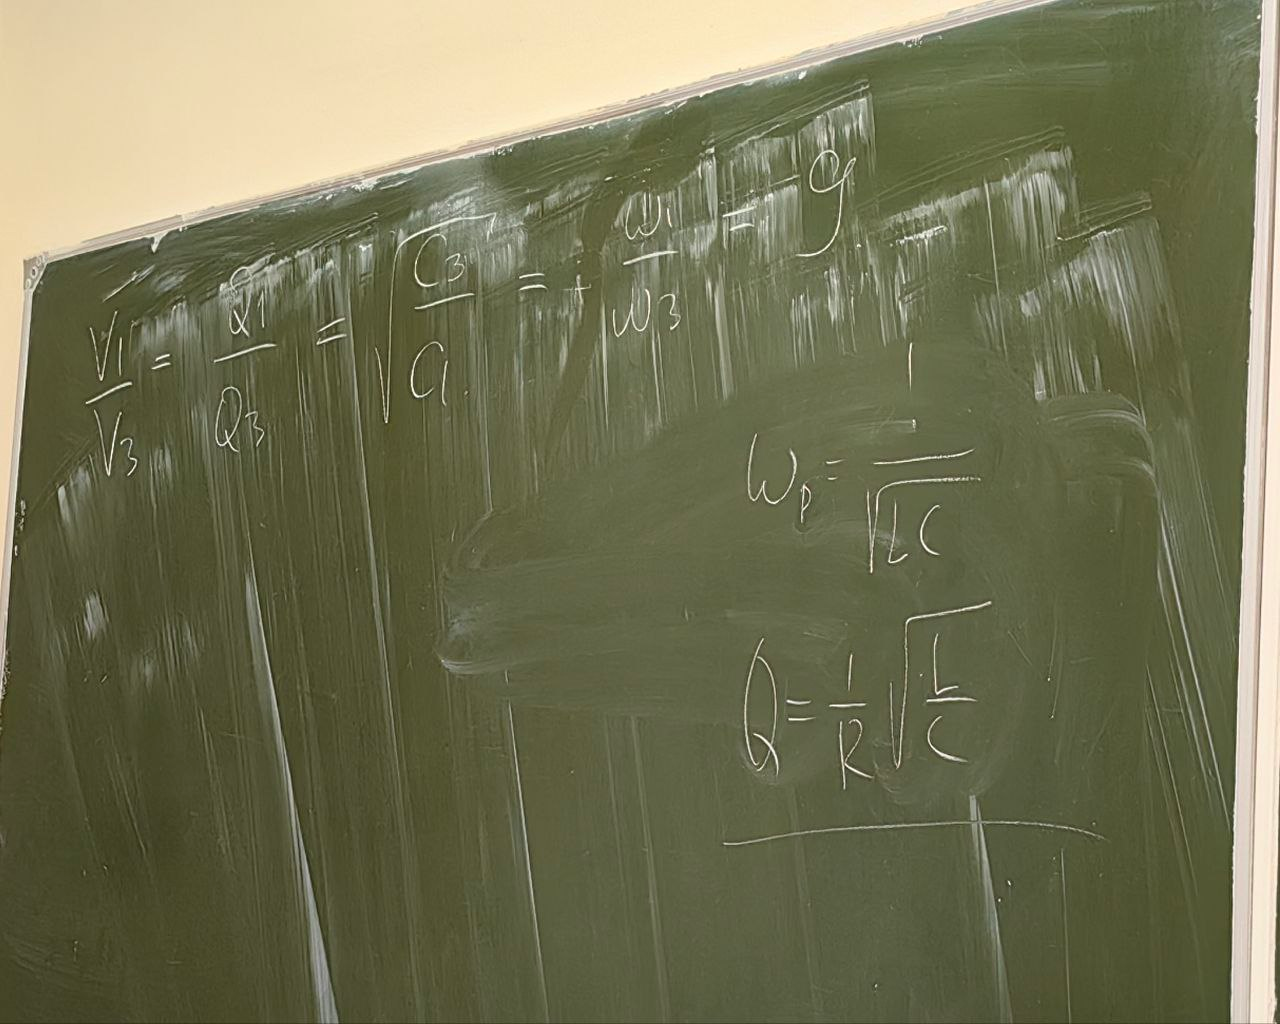 V1/V3 = Q1/Q3 = √(C3/C1) = + ω1/ω3 = g
ωp = 1/√(LC)
Q = 1/R √(L/C)